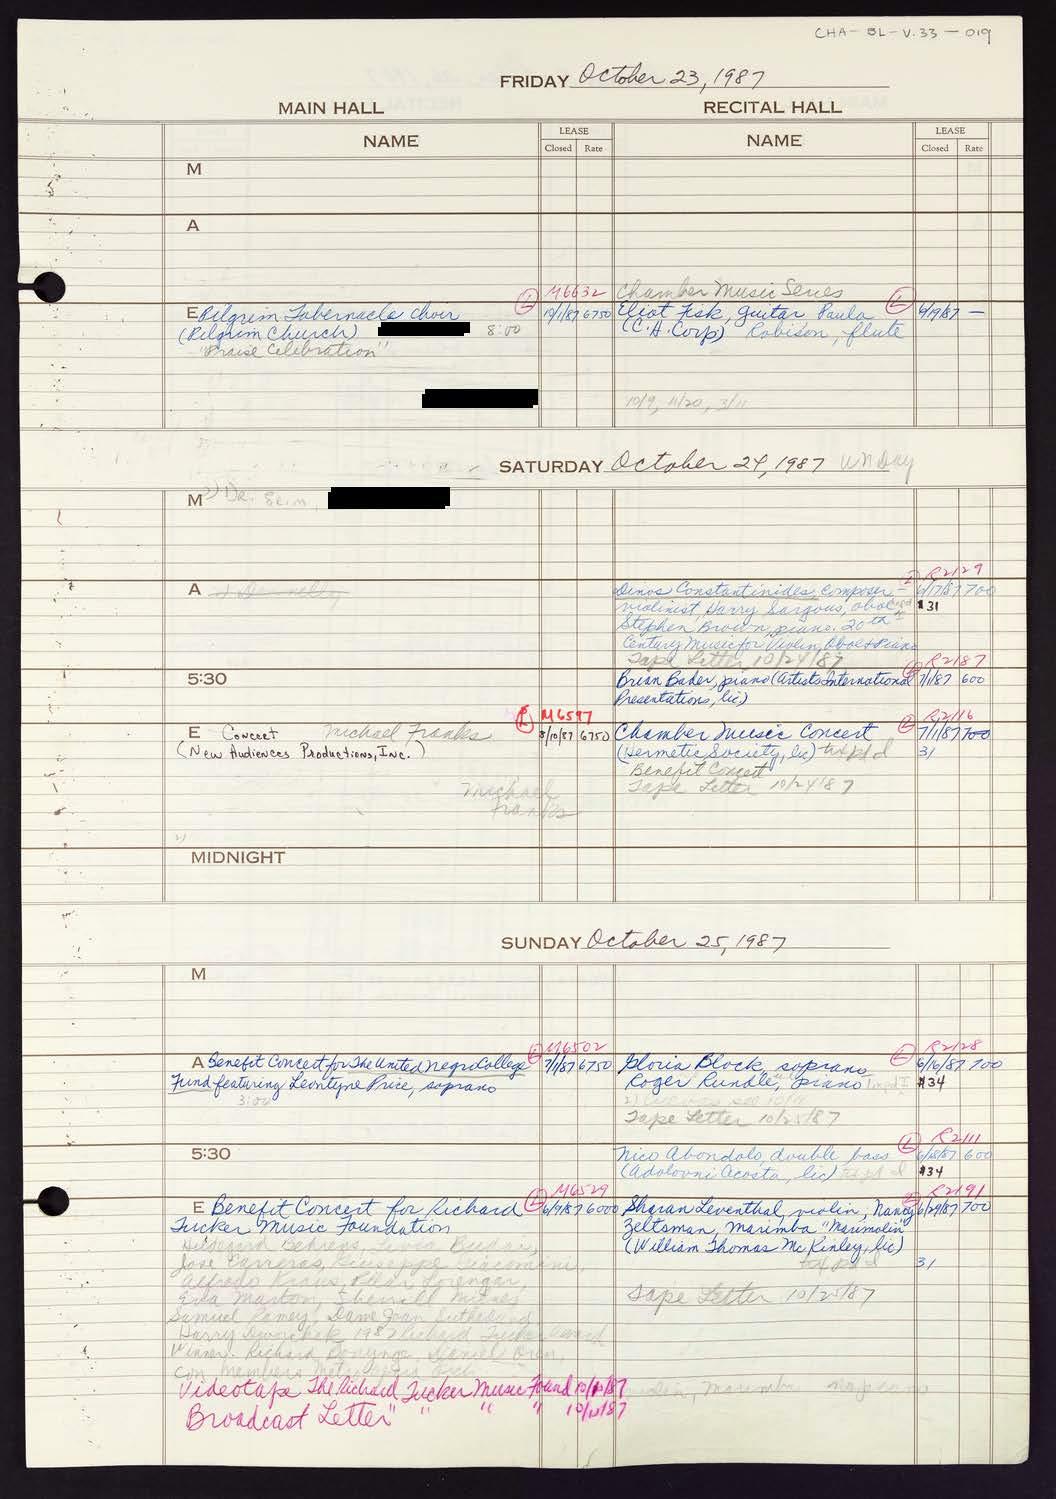 CHA-BL-V.33-019
FRIDAY October 23, 1987
MAIN HALL RECITAL HALL
NAME LEASE Closed Rate NAME LEASE Closed Rate
M
A
M6632 Chamber Music Series
E Pilgrim Tabernacle Choir L 10/1/87 6750 Eliot Fisk, guitar Paula L 9/9/87 —
(Pilgrim Church) 8:00 (C.H. Corp) Robison, flute
"Praise Celebration"
10/9, 11/20, 3/11
SATURDAY October 24, 1987 UN Day
M Dr.
A
R2129
Dinos Constantinides, composer - L 6/17/87 700
violinist, Harry Sargous, oboe $31
Stephen Brown, piano. 20th
Century Music for Violin, Oboe & Piano
Tape Letter 10/24/87
R2187
5:30 Brian Baker, piano (Artists International L 7/1/87 600
Presentations, lic)
M6597 R2116
E Concert Michael Franks L 8/10/87 6750 Chamber Music Concert L 7/1/87 700
(New Audiences Productions, Inc.) (Hermetic Society, lic) 31
Benefit Concert
Michael Tape Letter 10/24/87
Franks
MIDNIGHT
SUNDAY October 25, 1987
M
M6502 R2128
A Benefit Concert for The United Negro College L 7/1/87 6750 Gloria Block, soprano L 6/16/87 700
Fund featuring Leontyne Price, soprano Roger Rundle, piano $34
3:00
Tape Letter 10/25/87
R2111
5:30 Nico Abondolo, double bass L 600
(Adolovni Acosta, lic) $34
M6529 R2191
E Benefit Concert for Richard L 6/9/87 6000 Sharan Leventhal, violin, Nancy L 6/29/87 700
Tucker Music Foundation Zeltsman, marimba "Marimolin"
Hildegard Behrens, (William Thomas McKinley, lic)
Jose Carreras, Giuseppe Giacomini, 31
Alfredo Kraus, Pilar Lorengar,
Eva Marton, Sherrill Milnes Tape Letter 10/25/87
Samuel Ramey, Dame Joan Sutherland,
Harry Dworchak 1987 Richard Tucker Award
Winner. Richard Bonynge Daniel Oren,
con. Members
Videotape The Richard Tucker Music Found 10/10/87 marimba
Broadcast Letter " " " " 10/10/87